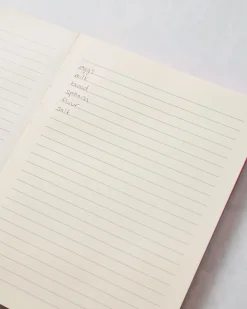 eggs
milk
bread
spinach
flour
salt